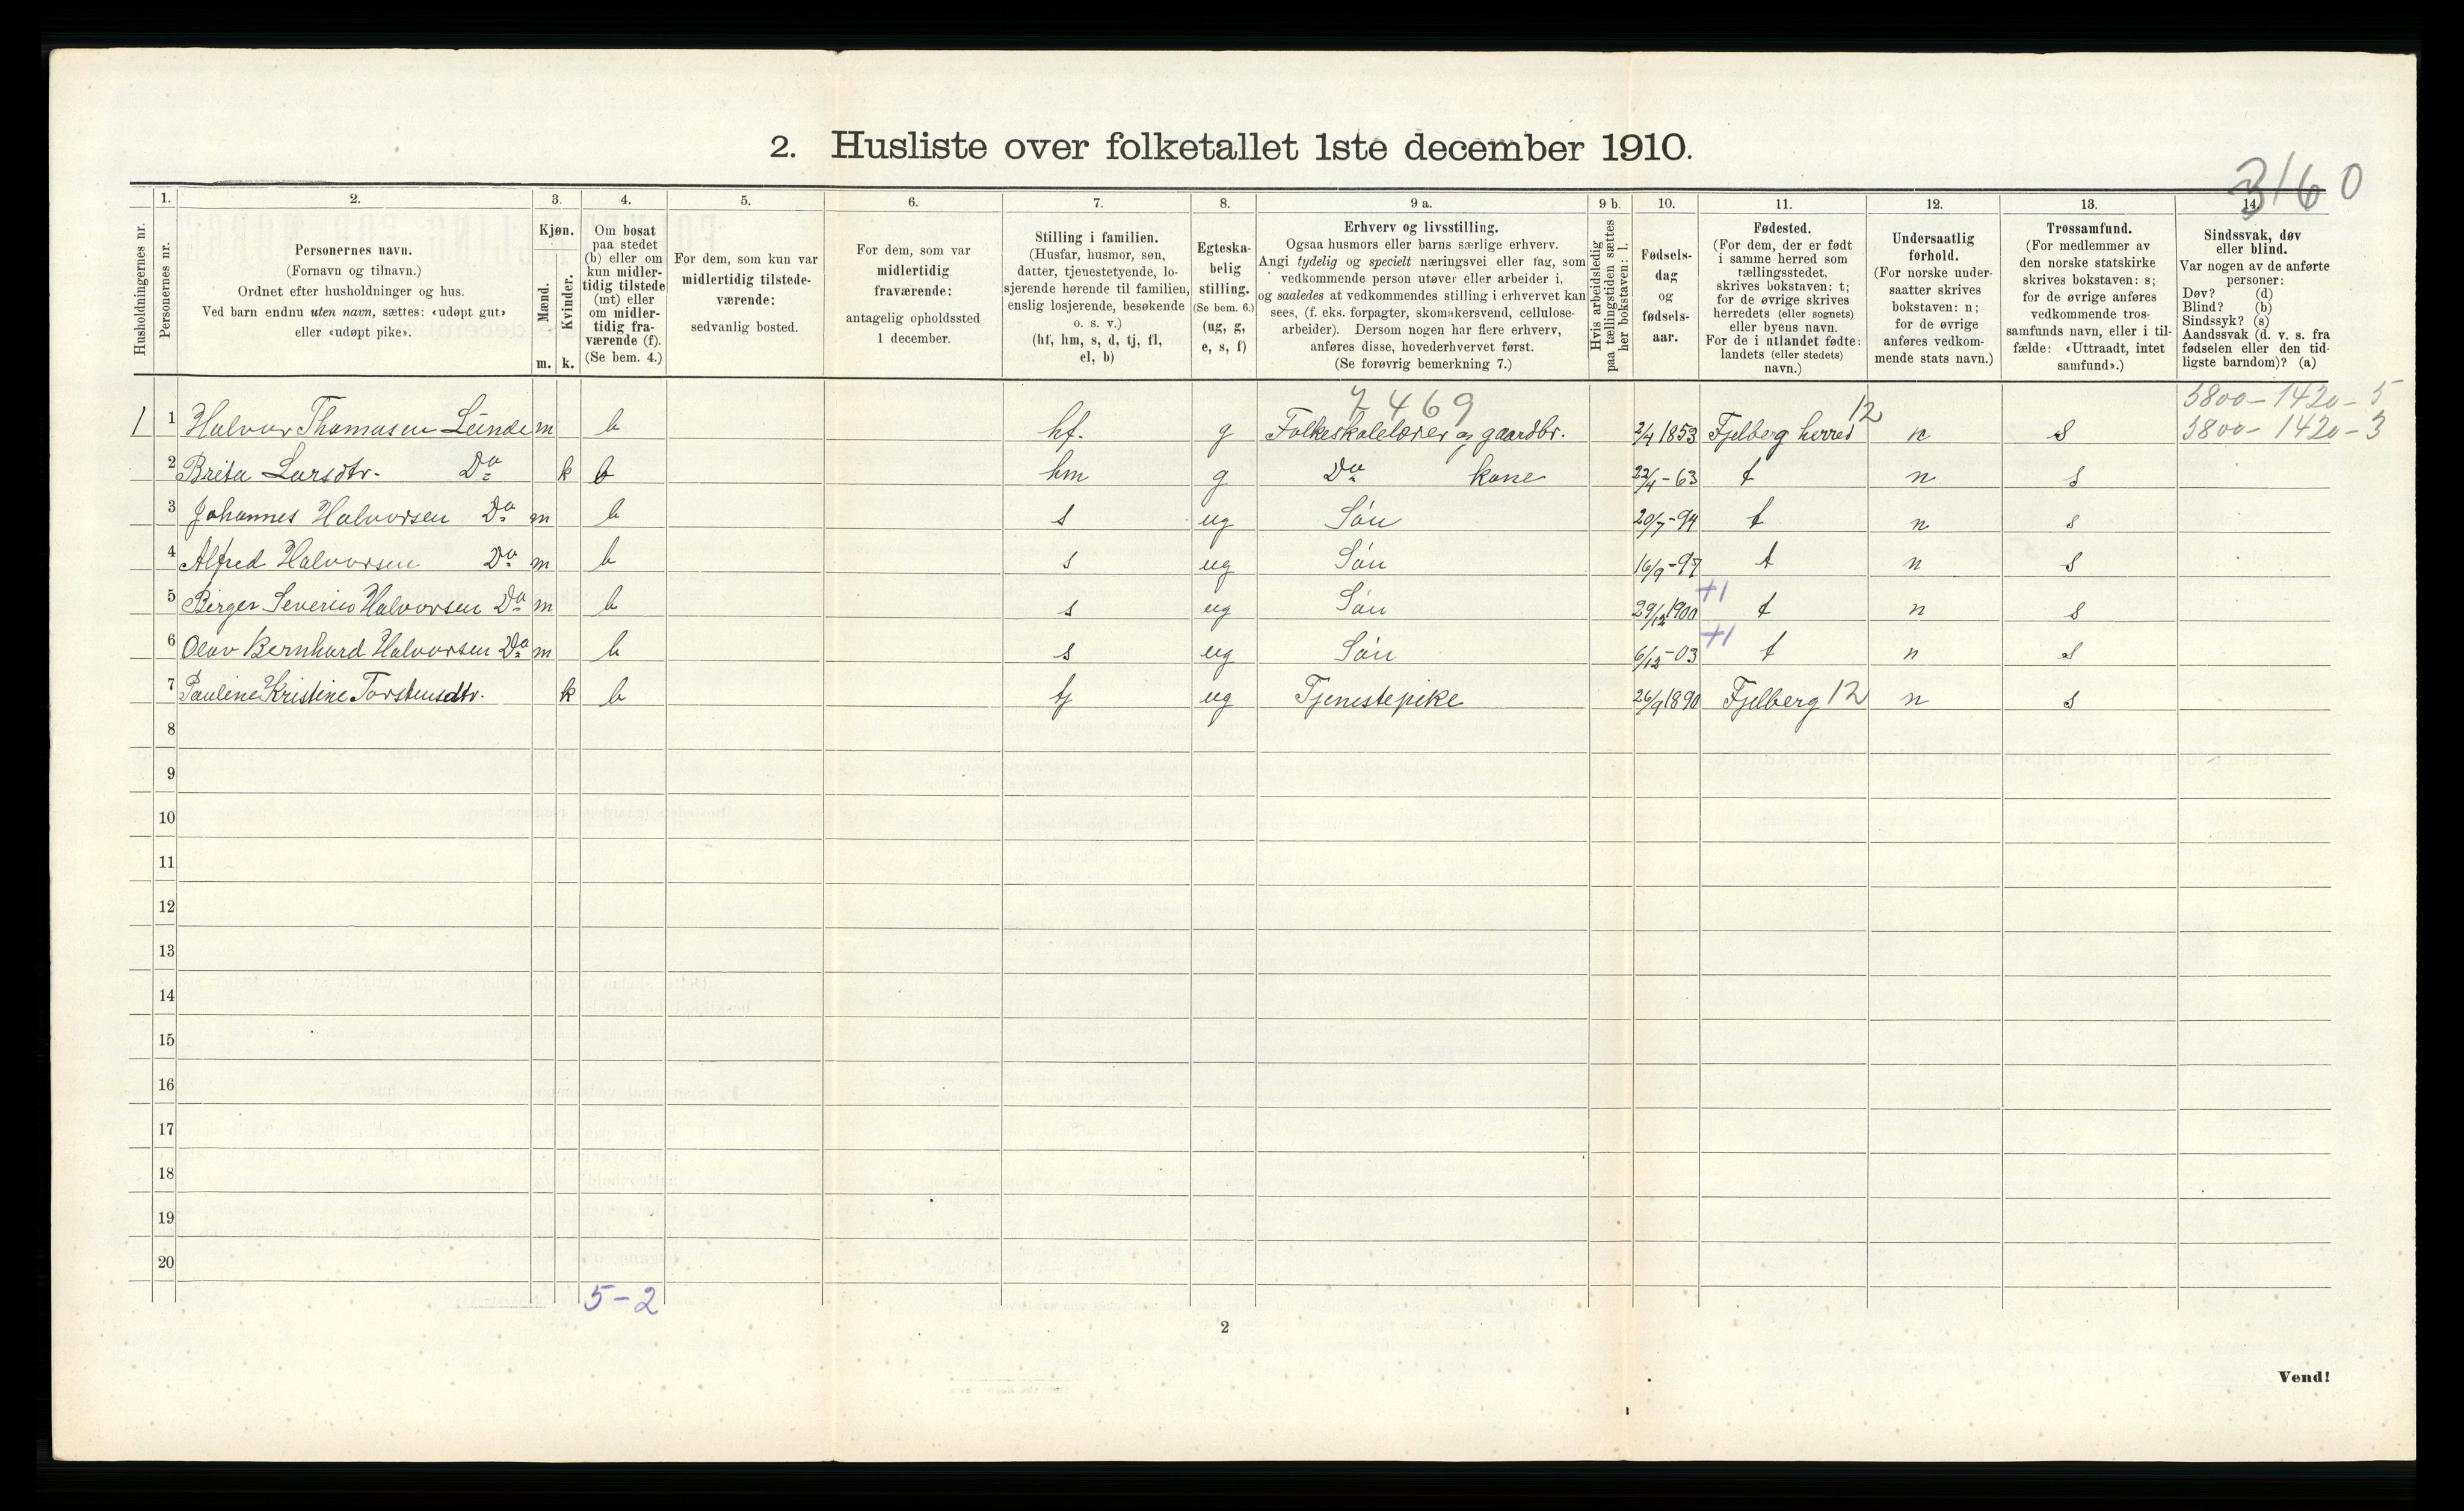 2. Husliste over folketallet 1ste december 1910.
3160
Husholdningernes nr.
1.
Personernes nr.
2.
Personernes navn.
(Fornavn og tilnavn.)
Ordnet efter husholdninger og hus.
Ved barn endnu uten navn, sættes: «udøpt gut»
eller «udøpt pike».
3.
Kjøn.
Mænd.
Kvinder.
m. k.
4.
Om bosat
paa stedet
(b) eller om
kun midler-
tidig tilstede
(mt) eller
om midler-
tidig fra-
værende (f).
(Se bem. 4.)
5.
For dem, som kun var
midlertidig tilstede-
værende:
sedvanlig bosted.
6.
For dem, som var
midlertidig
fraværende:
antagelig opholdssted
1 december.
7.
Stilling i familien.
(Husfar, husmor, søn,
datter, tjenestetyende, lo-
sjerende hørende til familien,
enslig losjerende, besøkende
o. s. v.)
(hf, hm, s, d, tj, fl,
el, b)
8.
Egteska-
belig
stilling.
(Se bem. 6.)
(ug, g,
e, s, f)
9 a.
Erhverv og livsstilling.
Ogsaa husmors eller barns særlige erhverv.
Angi tydelig og specielt næringsvei eller fag, som
vedkommende person utøver eller arbeider i,
og saaledes at vedkommendes stilling i erhvervet kan
sees, (f. eks. forpagter, skomakersvend, cellulose-
arbeider). Dersom nogen har flere erhverv,
anføres disse, hovederhvervet først.
(Se forøvrig bemerkning 7.)
9 b.
Hvis arbeidsledig
paa tællingstiden sættes
her bokstaven: l.
10.
Fødsels-
dag
og
fødsels-
aar.
11.
Fødested.
(For dem, der er født
i samme herred som
tællingsstedet,
skrives bokstaven: t;
for de øvrige skrives
herredets (eller sognets)
eller byens navn.
For de i utlandet fødte:
landets (eller stedets)
navn.)
12.
Undersaatlig
forhold.
(For norske under-
saatter skrives
bokstaven: n;
for de øvrige
anføres vedkom-
mende stats navn.)
13.
Trossamfund.
(For medlemmer av
den norske statskirke
skrives bokstaven: s;
for de øvrige anføres
vedkommende tros-
samfunds navn, eller i til-
fælde: «Uttraadt, intet
samfund».)
14.
Sindssvak, døv
eller blind.
Var nogen av de anførte
personer:
Døv? (d)
Blind? (b)
Sindssyk? (s)
Aandssvak (d. v. s. fra
fødselen eller den tid-
ligste barndom)? (a)
7469 12 3800-1420-5
1 1 Halvor Thomasen Lunde m b hf. g Folkeskolelærer og gaardbr. 2/4 1853 Fjelberg herred n s 3800-1420-3
2 Brita Larsdtr. Do k b hm g Do kone 22/4-63 t n s
3 Johannes Halvorsen Do m b s ug Søn 20/7-94 t n s
4 Alfred Halvorsen Do m b s ug Søn 16/9-97 t n s
5 Birger Severin Halvorsen Do m b s ug Søn 29/12 1900 +1 t n s
6 Olav Bernhard Halvorsen Do m b s ug Søn 6/12-03 +1 t n s
7 Pauline Kristine Torstensdtr. k b tj ug Tjenestepike 26/9 1890 Fjelberg 12 n s
8
9
10
11
12
13
14
15
16
17
18
19
20
5-2
2
Vend!